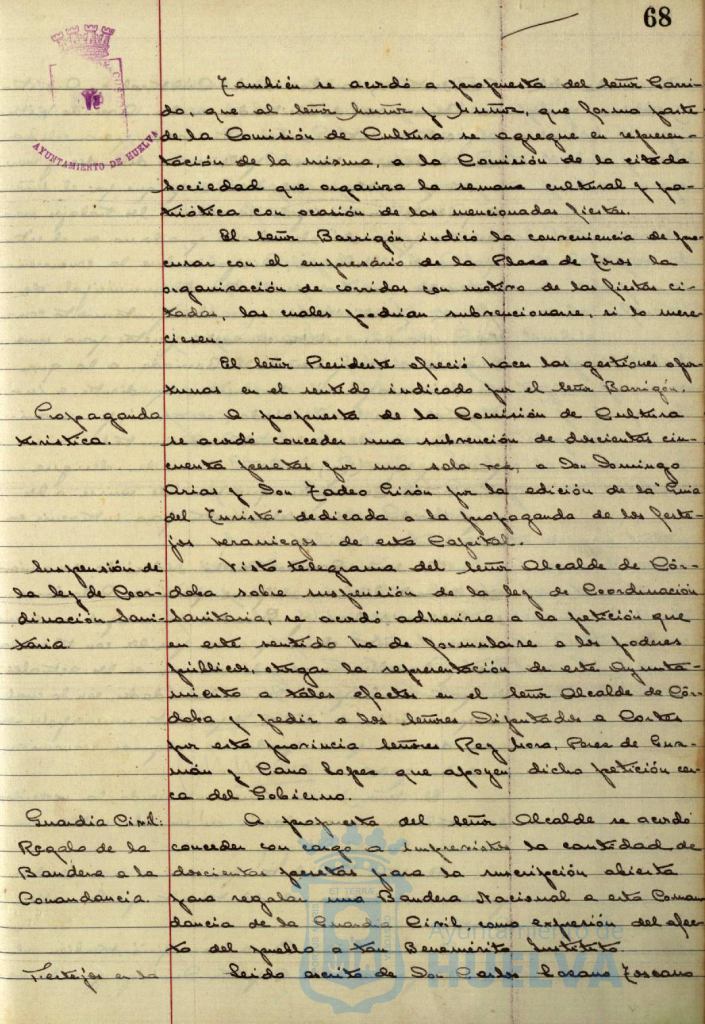 68
AYUNTAMIENTO DE HUELVA
También se acordó a propuesta del Señor Garri-
do, que al Señor Muñoz y Muñoz, que forma parte
de la Comisión de Cultura se agregue en represen-
tación de la misma, a la Comisión de la citada
Sociedad que organiza la semana cultural y pa-
triótica con ocasión de las mencionadas fiestas.
El Señor Barrigón indicó la conveniencia de pro-
curar con el empresário de la Plaza de Toros la
organización de corridas con motivo de las fiestas ci-
tadas, las cuales podrian subvencionarse, si lo mere-
ciesen.
El Señor Presidente ofreció hacer las gestiones opor-
tunas en el sentido indicado por el Señor Barrigón.
Propaganda
turistica.
A propuesta de la Comisión de Cultura
se acordó conceder una subvención de doscientas cin-
cuenta pesetas por una sola vez, a Don Domingo
Arias y Don Tadeo Girón por la edición de la "Guia
del Turista" dedicada a la propaganda de los feste-
jos veraniegos de esta Capital.
Suspensión de
la ley de Coor-
dinación Sani-
taria.
Visto telegrama del Señor Alcalde de Cór-
doba sobre suspensión de la ley de Coordinación
Sanitaria, se acordó adherirse a la petición que
en este sentido ha de formularse a los poderes
públicos, otorgar la representación de este Ayunta-
miento a tales efectos en el Señor Alcalde de Cór-
doba y pedir a los Señores Diputados a Cortes
por esta provincia Señores Rey Mora, Perez de Guz-
mán y Cano Lopez que apoyen dicha petición cer-
ca del Gobierno.
Guardia Civil:
Regalo de la
Bandera a la
Comandancia.
A propuesta del Señor Alcalde se acordó
conceder con cargo a imprevistos la cantidad de
doscientas pesetas para la suscripción abierta
para regalar una Bandera Nacional a esta Coman-
dancia de la Guardia Civil, como expresión del afec-
to del pueblo a tan Benemérito Instituto.
Festejos en la
Leido escrito de Don Carlos Lozano Toscano
HUELVA